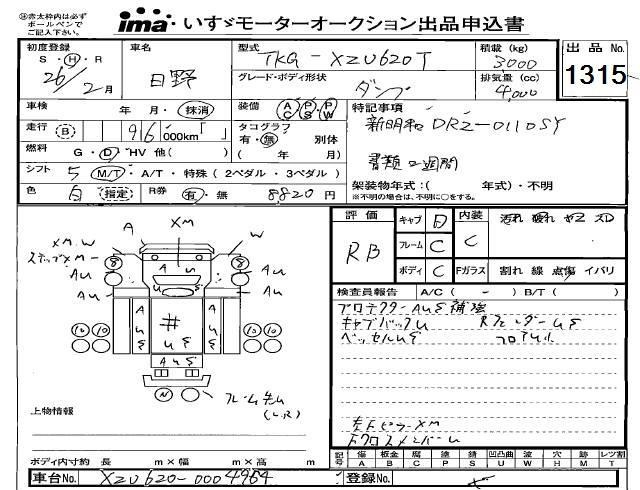 ㊟赤太枠内は必ず
ボールペンで
ご記入下さい。
ima いすゞモーターオークション出品申込書
初度登録 車名 型式 積載 (kg) 出品 No.
S・H・R 26/2月 日野 TKG-XZU620T 3000 1315
グレード・ボディ形状 ダンプ 排気量 (cc) 4,000
車検 年 月・抹消 装備 AC PS PW 特記事項
走行 (B) 96 000km「 」 タコグラフ 有・無 別体 新明和 DR2-0110SY
燃料 G・D・HV 他( ) ( 年 月) 書類2週間
シフト 5 M/T・A/T・特殊 (2ペダル・3ペダル) 架装物年式:( 年式)・不明
色 白 指定 R券 有・無 8820円 ※不明の場合は、不明に○をする。
評価 キャブ D 内装 汚れ 破れ ヤニ スレ
RB フレーム C C
ボディ C Fガラス 割れ 線 点傷 イバリ
検査員報告 A/C ( - ) B/T ( )
プロテクターAUS補強
キャブバックU RフェンダーUS
ベッセルUS フロアU
左FピラーXM
FクロスメンバーU
A XM
XM.W W
ステップXM
AU AU
AU AU
A # A
U S
AUS
N
フレーム先U
(L.R)
上物情報
ボディ内寸約 長 m×幅 m×高 m
記号 傷 板金 腐 塗 錆 凹凸曲 波 穴 跡 レツ割
A B C P S U W H M T
車台No. XZU620-0004964 登録No.